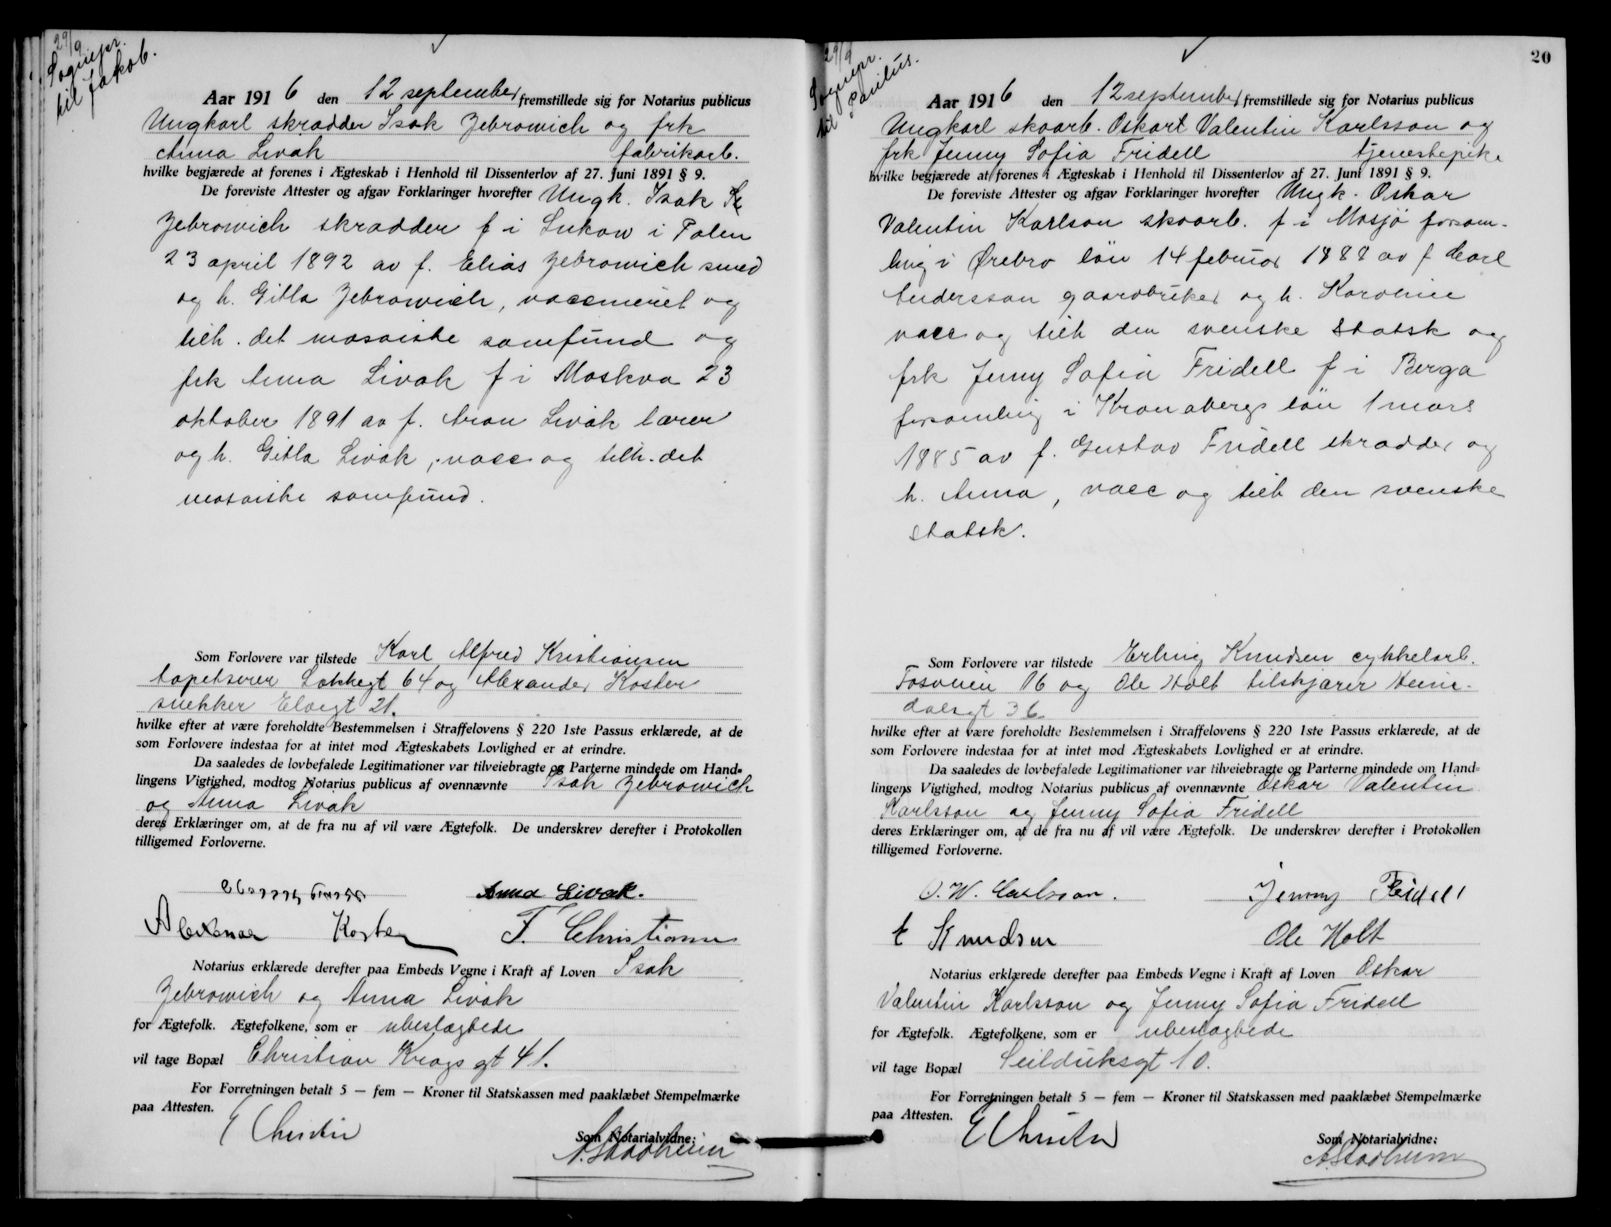 29/9
Sognepr.
til Jakob.
Aar 1916 den 12 september fremstillede sig for Notarius publicus
Ungkarl skrædder Isak Zebrowich og frk
Anna Livak fabrikarb.
hvilke begjærede at forenes i Ægteskab i Henhold til Dissenterlov af 27. Juni 1891 § 9.
De foreviste Attester og afgav Forklaringer hvorefter Ungk. Isak
Zebrowich skrædder f i Lukow i Polen
23 april 1892 av f. Elias Zebrowich smed
og h. Gitla Zebrowich, vaccineret og
tilh. det mosaiske samfund og
frk Anna Livak f i Moskva 23
oktober 1891 av f. Aron Livak lærer
og h. Gitla Livak, vacc og tilh. det
mosaiske samfund.
Som Forlovere var tilstede Karl Alfred Kristiansen
tapetserer Løkkegt 64 og Alexander Koster
snekker Elvegt 21.
hvilke efter at være foreholdte Bestemmelsen i Straffelovens § 220 1ste Passus erklærede, at de
som Forlovere indestaa for at intet mod Ægteskabets Lovlighed er at erindre.
Da saaledes de lovbefalede Legitimationer var tilveiebragte og Parterne mindede om Hand-
lingens Vigtighed, modtog Notarius publicus af ovennævnte Isak Zebrowich
og Anna Livak
deres Erklæringer om, at de fra nu af vil være Ægtefolk. De underskrev derefter i Protokollen
tilligemed Forloverne.
Anna Livak.
Alexander Koster F. Christiansen
Notarius erklærede derefter paa Embeds Vegne i Kraft af Loven Isak
Zebrowich og Anna Livak
for Ægtefolk. Ægtefolkene, som er ubeslægtede
vil tage Bopæl Christian Krogs gt 41.
For Forretningen betalt 5 — fem — Kroner til Statskassen med paaklæbet Stempelmærke
paa Attesten.
Som Notarialvidne:
20
29/9
Sognepr.
til Paulus.
Aar 1916 den 12 september fremstillede sig for Notarius publicus
Ungkarl skoarb. Oskart Valentin Karlsson og
frk Jenny Sofia Fridell tjenestepike
hvilke begjærede at forenes i Ægteskab i Henhold til Dissenterlov af 27. Juni 1891 § 9.
De foreviste Attester og afgav Forklaringer hvorefter Ungk. Oskar
Valentin Karlson skoarb. f i Mosjø forsam-
ling i Ørebro län 14 februar 1888 av f Carl
Andersson gaardbruker og h. Karoline
vacc og tilh den svenske Statsk og
frk Jenny Sofia Fridell f i Berga
forsamling i Kronobergs län 1 mars
1885 av f. Gustav Fridell skrædder og
h. Anna, vacc og tilh den svenske
statsk.
Som Forlovere var tilstede Erling Knudsen cykkelarb.
Fossveien 16 og Ole Holt tilskjærer Heim-
dalsgt 36.
hvilke efter at være foreholdte Bestemmelsen i Straffelovens § 220 1ste Passus erklærede, at de
som Forlovere indestaa for at intet mod Ægteskabets Lovlighed er at erindre.
Da saaledes de lovbefalede Legitimationer var tilveiebragte og Parterne mindede om Hand-
lingens Vigtighed, modtog Notarius publicus af ovennævnte Oskar Valentin
Karlsson og Jenny Sofia Fridell
deres Erklæringer om, at de fra nu af vil være Ægtefolk. De underskrev derefter i Protokollen
tilligemed Forloverne.
O. W. Carlsson. Jenny Fridell
E Knudsen Ole Holt
Notarius erklærede derefter paa Embeds Vegne i Kraft af Loven Oskar
Valentin Karlsson og Jenny Sofia Fridell
for Ægtefolk. Ægtefolkene, som er ubeslægtede
vil tage Bopæl Seilduksgt 10.
For Forretningen betalt 5 — fem — Kroner til Statskassen med paaklæbet Stempelmærke
paa Attesten.
Som Notarialvidne: